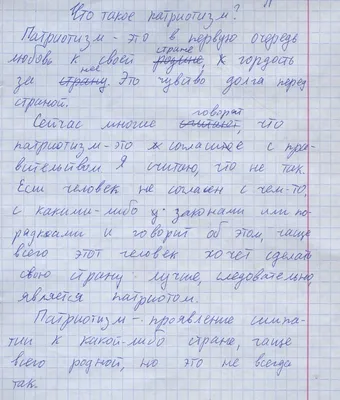 Что такое патриотизм?
Патриотизм - это в первую очередь
стране
любовь к своей родине, х гордость
нее
за страну. Это чувство долга перед
страной.
говорят
Сейчас многие считают, что
патриотизм - это согласие с пра-
вительством. Я считаю, что не так.
Если человек не согласен с чем-то,
с какими-либо законами или по-
рядками и говорит об этом, чаще
всего этот человек хочет сделать
свою страну лучше, следовательно,
является патриотом.
Патриотизм - проявление симпа-
тии к какой-либо стране, чаще
всего родной, но это не всегда
так.